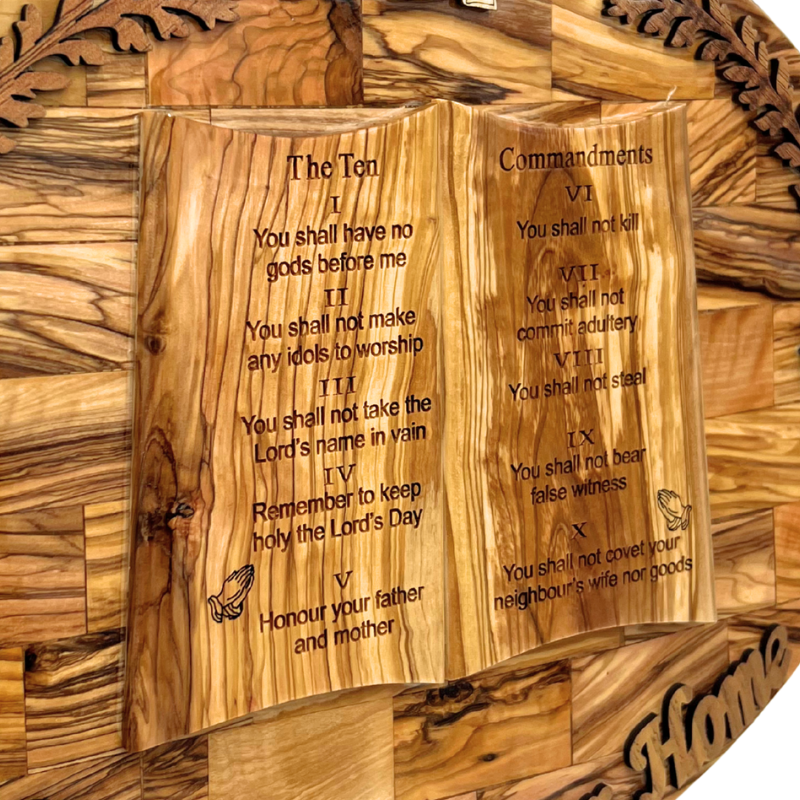 The Ten
I
You shall have no
gods before me
II
You shall not make
any idols to worship
III
You shall not take the
Lord's name in vain
IV
Remember to keep
holy the Lord's Day
V
Honour your father
and mother
Commandments
VI
You shall not kill
VII
You shall not
commit adultery
VIII
You shall not steal
IX
You shall not bear
false witness
X
You shall not covet your
neighbour's wife nor goods
Home